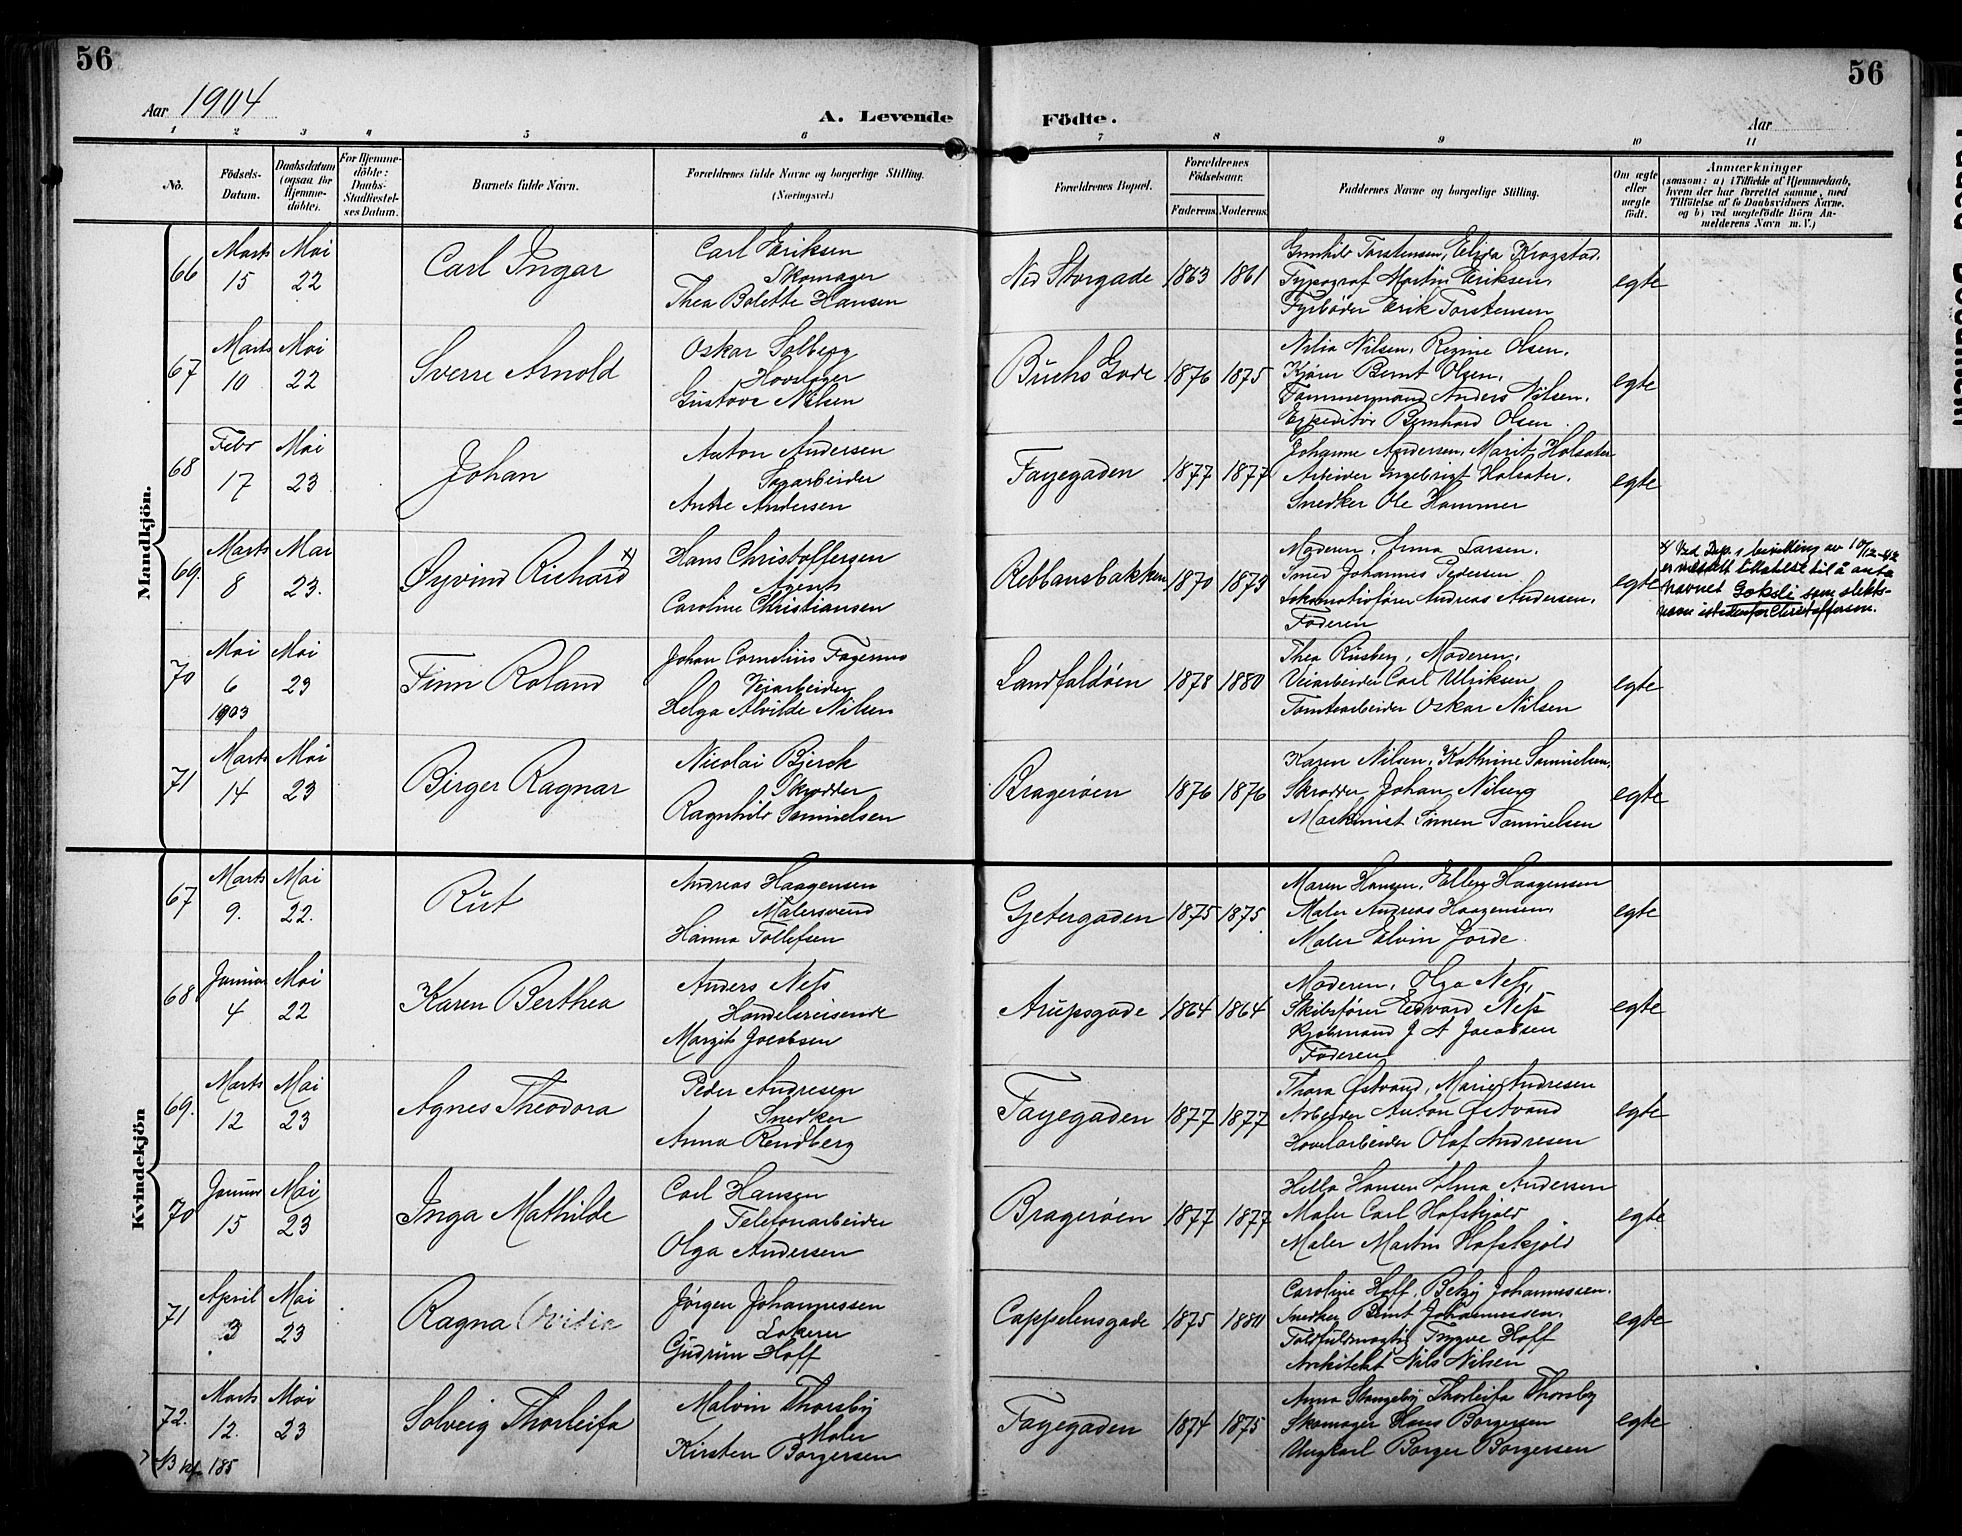 56
56
Aar 1904
A. Levende Födte.
Aar
1 2 3 4 5 6 7 8 9 10 11
No.
Födsels-Datum.
Daabsdatum (ogsaa for Hjemme-döbte).
For Hjemme-döbte: Daabs-Stadfæstel-ses Datum.
Barnets fulde Navn.
Forældrenes fulde Navne og borgerlige Stilling. (Næringsvei.)
Forældrenes Bopæl.
Forældrenes Födselsaar.
Faderens. Moderens.
Faddernes Navne og borgerlige Stilling.
Om ægte eller uægte födt.
Anmærkninger
(saasom: a) i Tilfælde af Hjemmedaab, hvem der har forrettet samme, med Tilföielse af to Daabsvidners Navne, og b) ved uægtefödte Börn Anmelderens Navn m. V.)
Mandkjön.
66 Marts 15 Mai 22 Carl Ingar
Carl Eriksen
Skomager
Thea Bolette Hansen
Ned Storgade 1863 1861
Gunhild Torstensen, Elida Krogstad.
Typograf Martin Eriksen.
Fyrbøder Erik Torstensen
egte
67 Marts 10 Mai 22 Sverre Arnold
Oskar Solberg
Hovslager
Gustava Nilsen
Buchs Gade 1876 1875
Nilia Nilsen, Regine Olsen.
Kjører Bernt Olsen,
Tømmermand Anders Nilsen.
Expeditør Bernhard Olsen
egte
68 Febr 17 Mai 23 Johan
Anton Andersen
Sagarbeider
Andersen
Fayegaden 1877 1877
Johanne Andersen, Marit Holsæter
Arbeider Engebrigt Holsæter.
Snedker Ole Hammer
egte
69. Marts 8 Mai 23. Øyvind Richard x)
Hans Christoffersen
Agent
Caroline Christiansen
Rebbansbakken 1870 1879
Moderen, Anna Larsen.
Smed Johannes Pedersen
Lokomotivfører Andreas Andersen.
Faderen
egte
x) Ved Dep.s bevilling av 10/12-42
er meddelt tillatelse til å anta
navnet Goksli som slekts-
navn istedenfor Christoffersen.
70 Mai 6 1903 Mai 23 Finn Roland
Johan Cornelius Fagernes
Veiarbeider
Helga Alvilde Nilsen
Landfaldøen 1878 1880
Thea Riisberg, Moderen,
Veiarbeider Carl Ulriksen
Tomtearbeider Oskar Nilsen
egte
71 Marts 14 Mai 23 Birger Ragnar
Nicolai Bjerck
Skrædder
Ragnhild Samuelsen
Bragerøen 1876 1876
Karen Nilsen, Kathrine Samuelsen,
Skrædder Johan Nilsen
Maskinist Simen Samuelsen
egte
Kvindekjön
67 Marts 9. Mai 22. Rut
Andreas Haagensen
Malersvend
Hanna Tollefsen
Gjetergaden 1875 1875
Maren Hansen, Ellen Haagensen
Maler Andreas Haagensen.
Maler Elvin Jorde.
egte
68 Januar 4 Mai 22 Karen Berthea
Anders Ness
Handelsreisende
Margit Jacobsen
Arupsgade 1864 1864
Moderen, Olga Ness,
Skibsfører Edvard Ness
Kjøbmand J A Jacobsen
Faderen
egte
69. Marts 12 Mai 23 Agnes Theodora
Peder Andresen
Snedker
Anna Rendberg
Fayegaden 1877 1877
Thora Østvand, Marie Andresen
Arbeider Anton Østvand
Høvelarbeider Olaf Andresen
egte
70 Januar 15 Mai 23 Inga Mathilde
Carl Hansen
Telefonarbeider
Olga Andersen
Bragerøen 1877 1877
Helle Hansen Alma Andersen
Maler Carl Hofskjold
Maler Martin Hofskjold
egte
71 April 3 Mai 23 Ragna Ovidia
Jørgen Johannessen
Lakerer
Gudrun Hoff
Cappelensgade 1875 1880
Caroline Hoff, Betzy Johannessen.
Snedker Bernt Johannessen.
Toldfuldmægtig Trygve Hoff
Arkitekt Nils Nilsen
egte
72. Marts 12. Mai 23 Solveig Thorleifa
Malvin Thorsby
Maler
Kirsten Borgersen
Fayegaden 1874 1875
Anna Stangeby Thorleifa Thorsby
Skomager Hans Borgersen
Ungkarl Borger Borgersen
egte
NB kf. 185